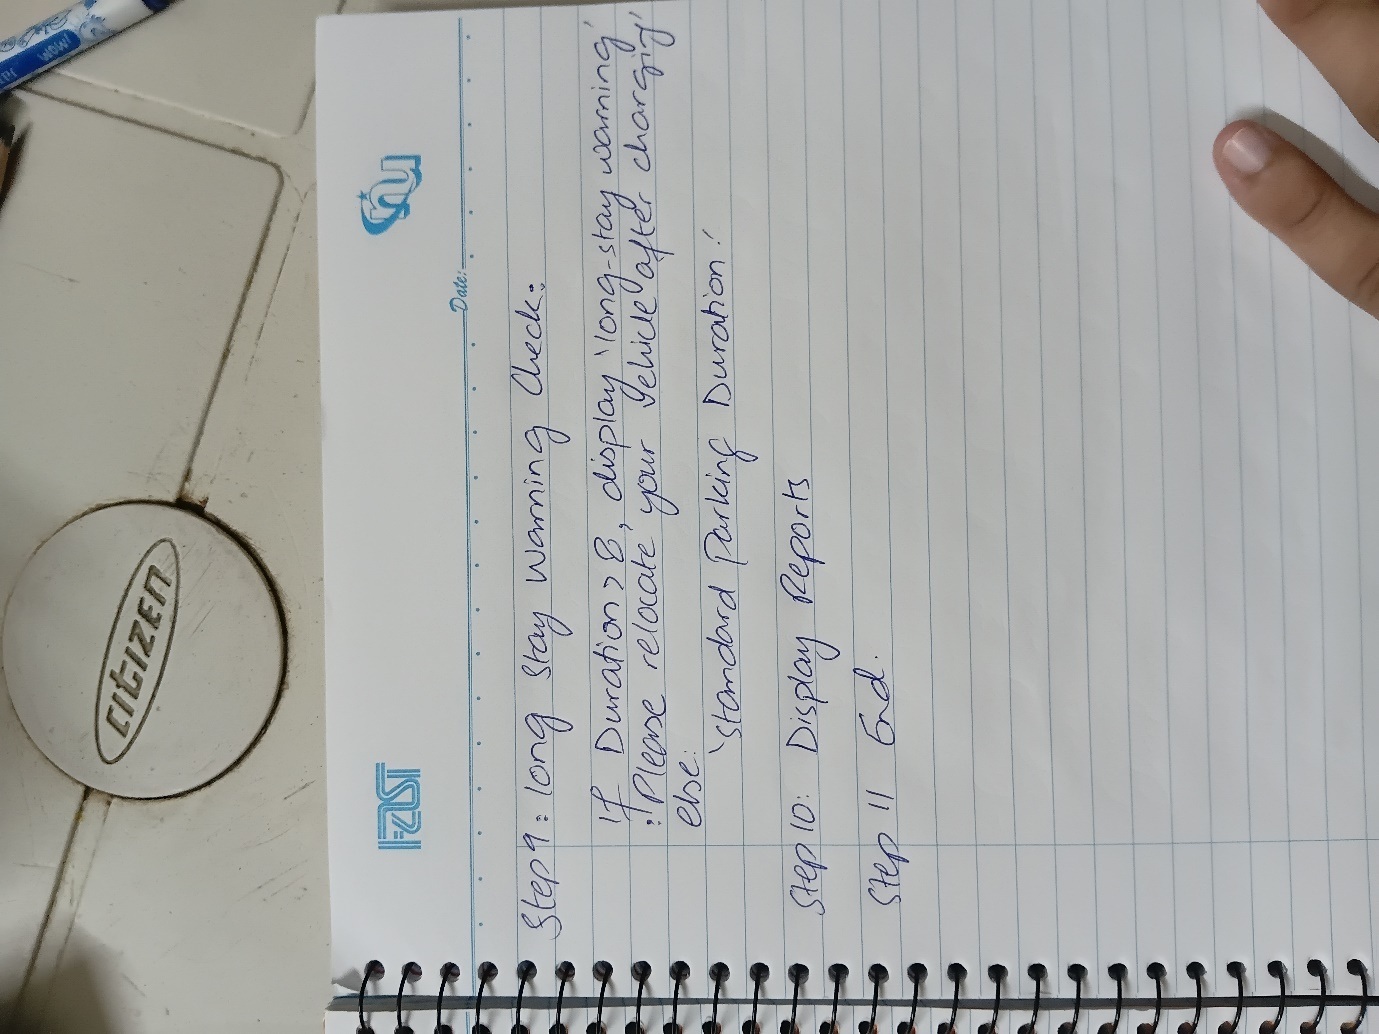 WOW!
CITIZEN
FAST
nu
Date:
Step 9: long Stay Warning Check:
if Duration > 8, display 'long-stay warning'
: 'Please relocate your Vehicle after charging'
else:
'Standard Parking Duration!
Step 10: Display Reports
Step 11 End.